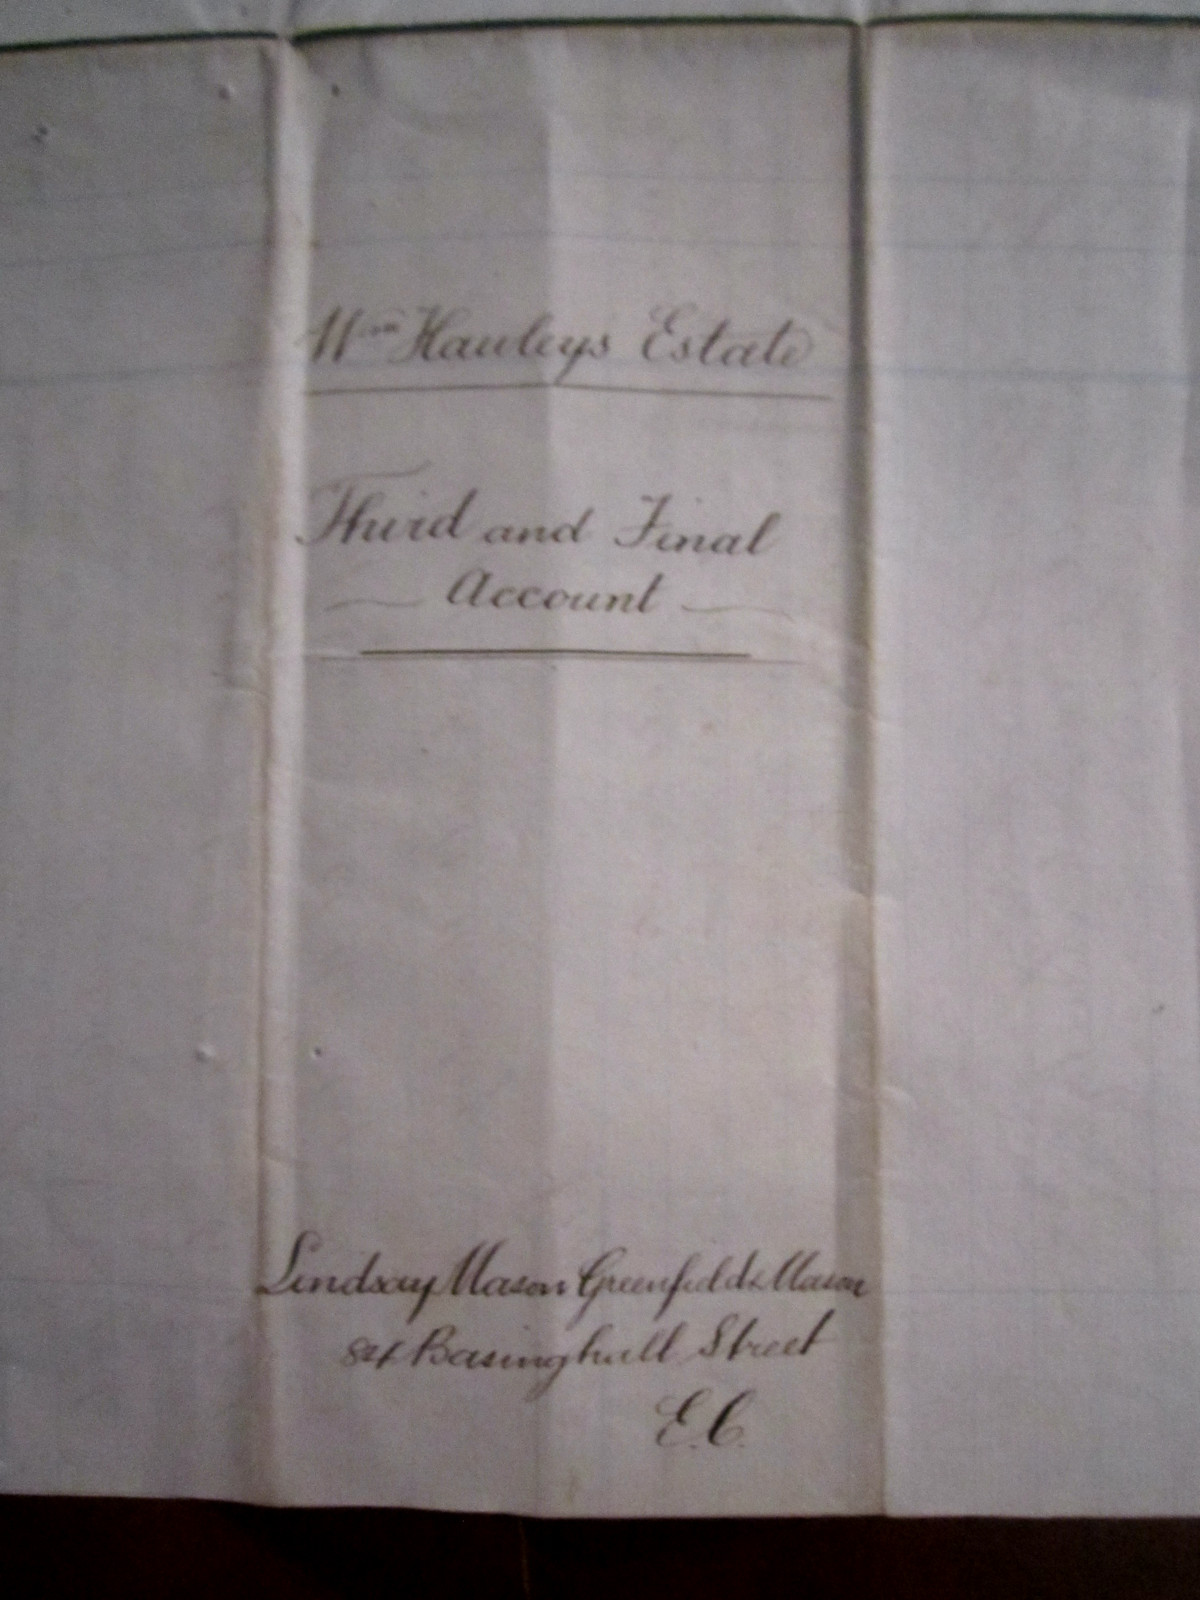 Wm Hauleys Estate
Third and Final
Account
Lindsay Mason Greenfield & Mason
84 Basinghall Street
E.C.